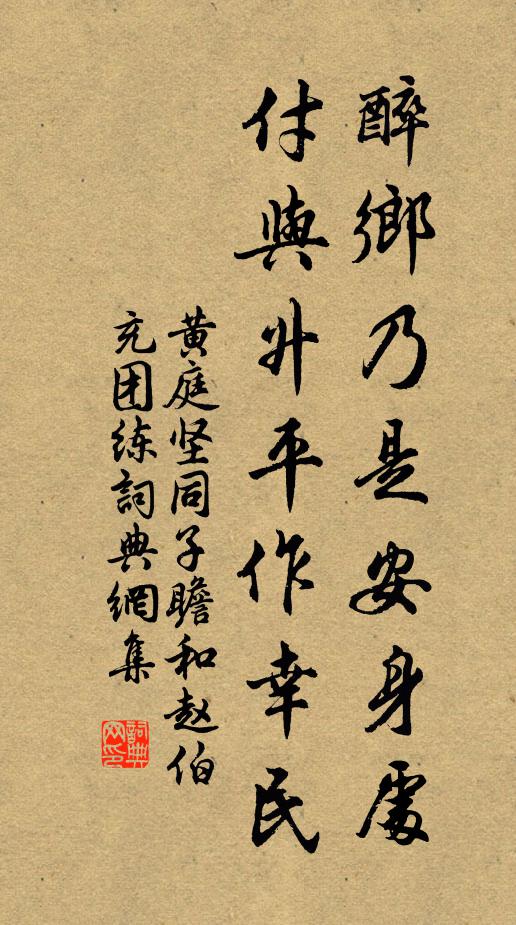 醉鄉乃是安身處
付與升平作幸民
黄庭坚同子瞻和赵伯
充团练詞典網集
詞典
网印